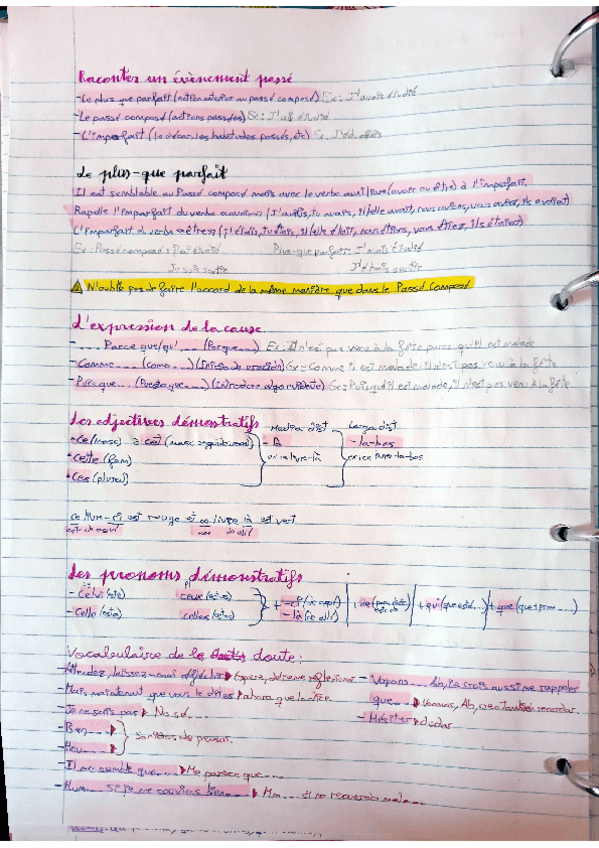 Raconter un évènement passé
-Le plus que parfait (action antérieur au passé composé) Ex: J'avais étudié
-Le passé composé (actions passées) Ex: J'ai étudié
-L'imparfait (le décor, les habitudes passés, etc) Ex:
Le plus-que parfait
Il est semblable au Passé composé mais avec le verbe auxiliaire (avoir ou être) à l'imparfait.
Rapelle l'imparfait du verbe (j'avais, tu avais, il/elle avait, nous avions, vous aviez, ils avaient)
L'imparfait du verbe «être» (j'étais, tu étais, il/elle était, nous étions, vous étiez, ils étaient)
Ex: Passé composé: j'ai étudié Plus-que parfait: J'avais étudié
Je suis sortie J'étais sortie
N'oublie pas de faire l'accord de la même manière que dans le Passé Composé
L'expression de la cause
-.... Parce que/qu' .... (Porque....) Ex: Il n'est pas venu à la fête parce qu'il est malade
-Comme.... (como...) (Inicio de oración) Ex: Comme il est malade il n'est pas venu à la fête
-Puisque... (Puesto que....) (Introducir algo evidente) Ex: Puisqu'il est malade, il n'est pas venu à la fête.
Les adjectives démostratifs
Media dist Larga dist
-Ce (masc) ó cet (masc -là -la-bas
-Cette (fem) ex: ce livre-là ex: ce livre-la-bas
-Ces (plural)
ce livre-ci est rouge et ce livre là est vert
Les pronoms démonstratifs
-Celui (este) ceux (estos) + -ci (de aquí) + qui (que está...) + que (que ....)
-Celle (esta) celles (estas) -là (de allí)
Vocabulaire de le doute:
-Attendez, laissez-moi réfléchir Espere, déjeme reflexionar
-Voyons.... Ah, je crois aussi me rappeler
que... Veamos, Ah, creo también recordar.
-Mais maintenant que vous le dites ahora que lo dice.
-Hésiter dudar
-Je ne sais pas No sé...
-Bien....
-Heu....
Sonidos de pensar.
-Il me semble que.... Me parece que....
-Hum.... si je me souviens bien.... Mm.... si no recuerdo mal....